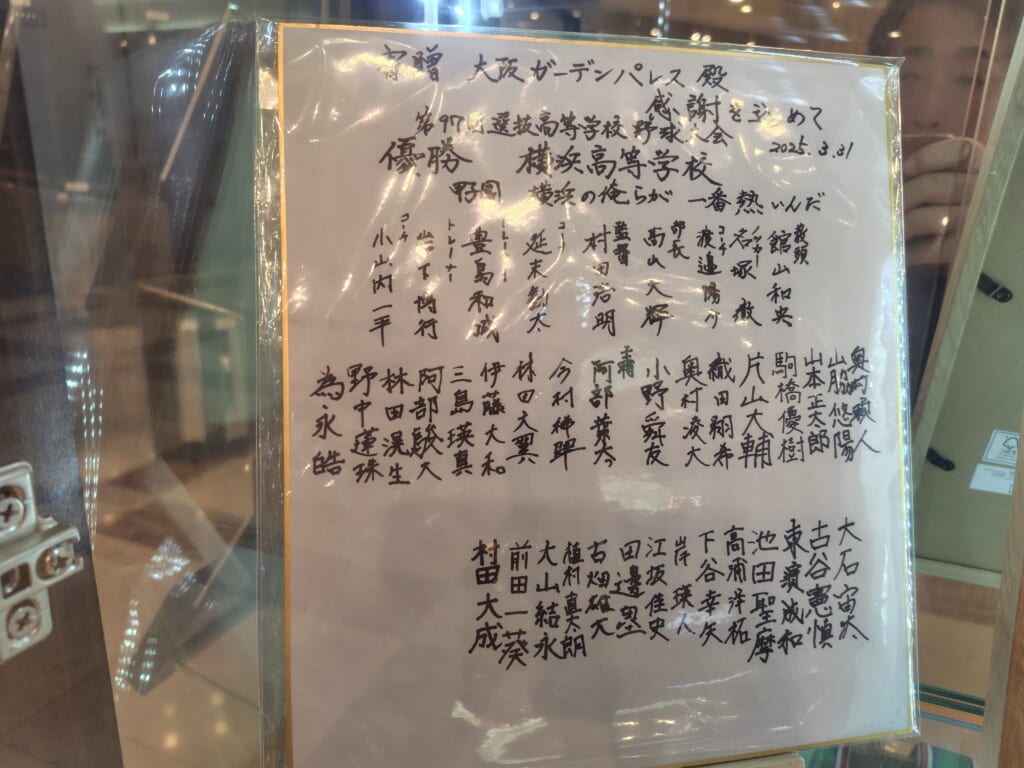 寄贈 大阪ガーデンパレス 殿
感謝をこめて
第97回選抜高等学校野球大会
2025.3.31
優勝 横浜高等学校
甲子園 横浜の俺らが 一番熱いんだ
教頭 館山和央
名塚 徹
コーチ 渡邉陽介
部長 高山大輝
監督 村田浩明
コーチ 延末
トレーナー 豊島和成
トレーナー 山下
コーチ 小山内一平
奥村頼人
山脇悠陽
山本正太郎
駒橋優樹
片山大輔
織田翔希
奥村凌大
小野舜友
主将 阿部葉太
今村稀翔
林田大翼
伊藤大和
三島瑛真
阿部駿大
林田滉生
野中蓮珠
為永皓
大石宙汰
古谷憲慎
東濵成和
池田聖摩
高浦洋祐
下谷幸矢
岸瑛人
江坂佳史
田邉塁
古畑雄大
植村真朗
大山結永
前田一葵
村田大成